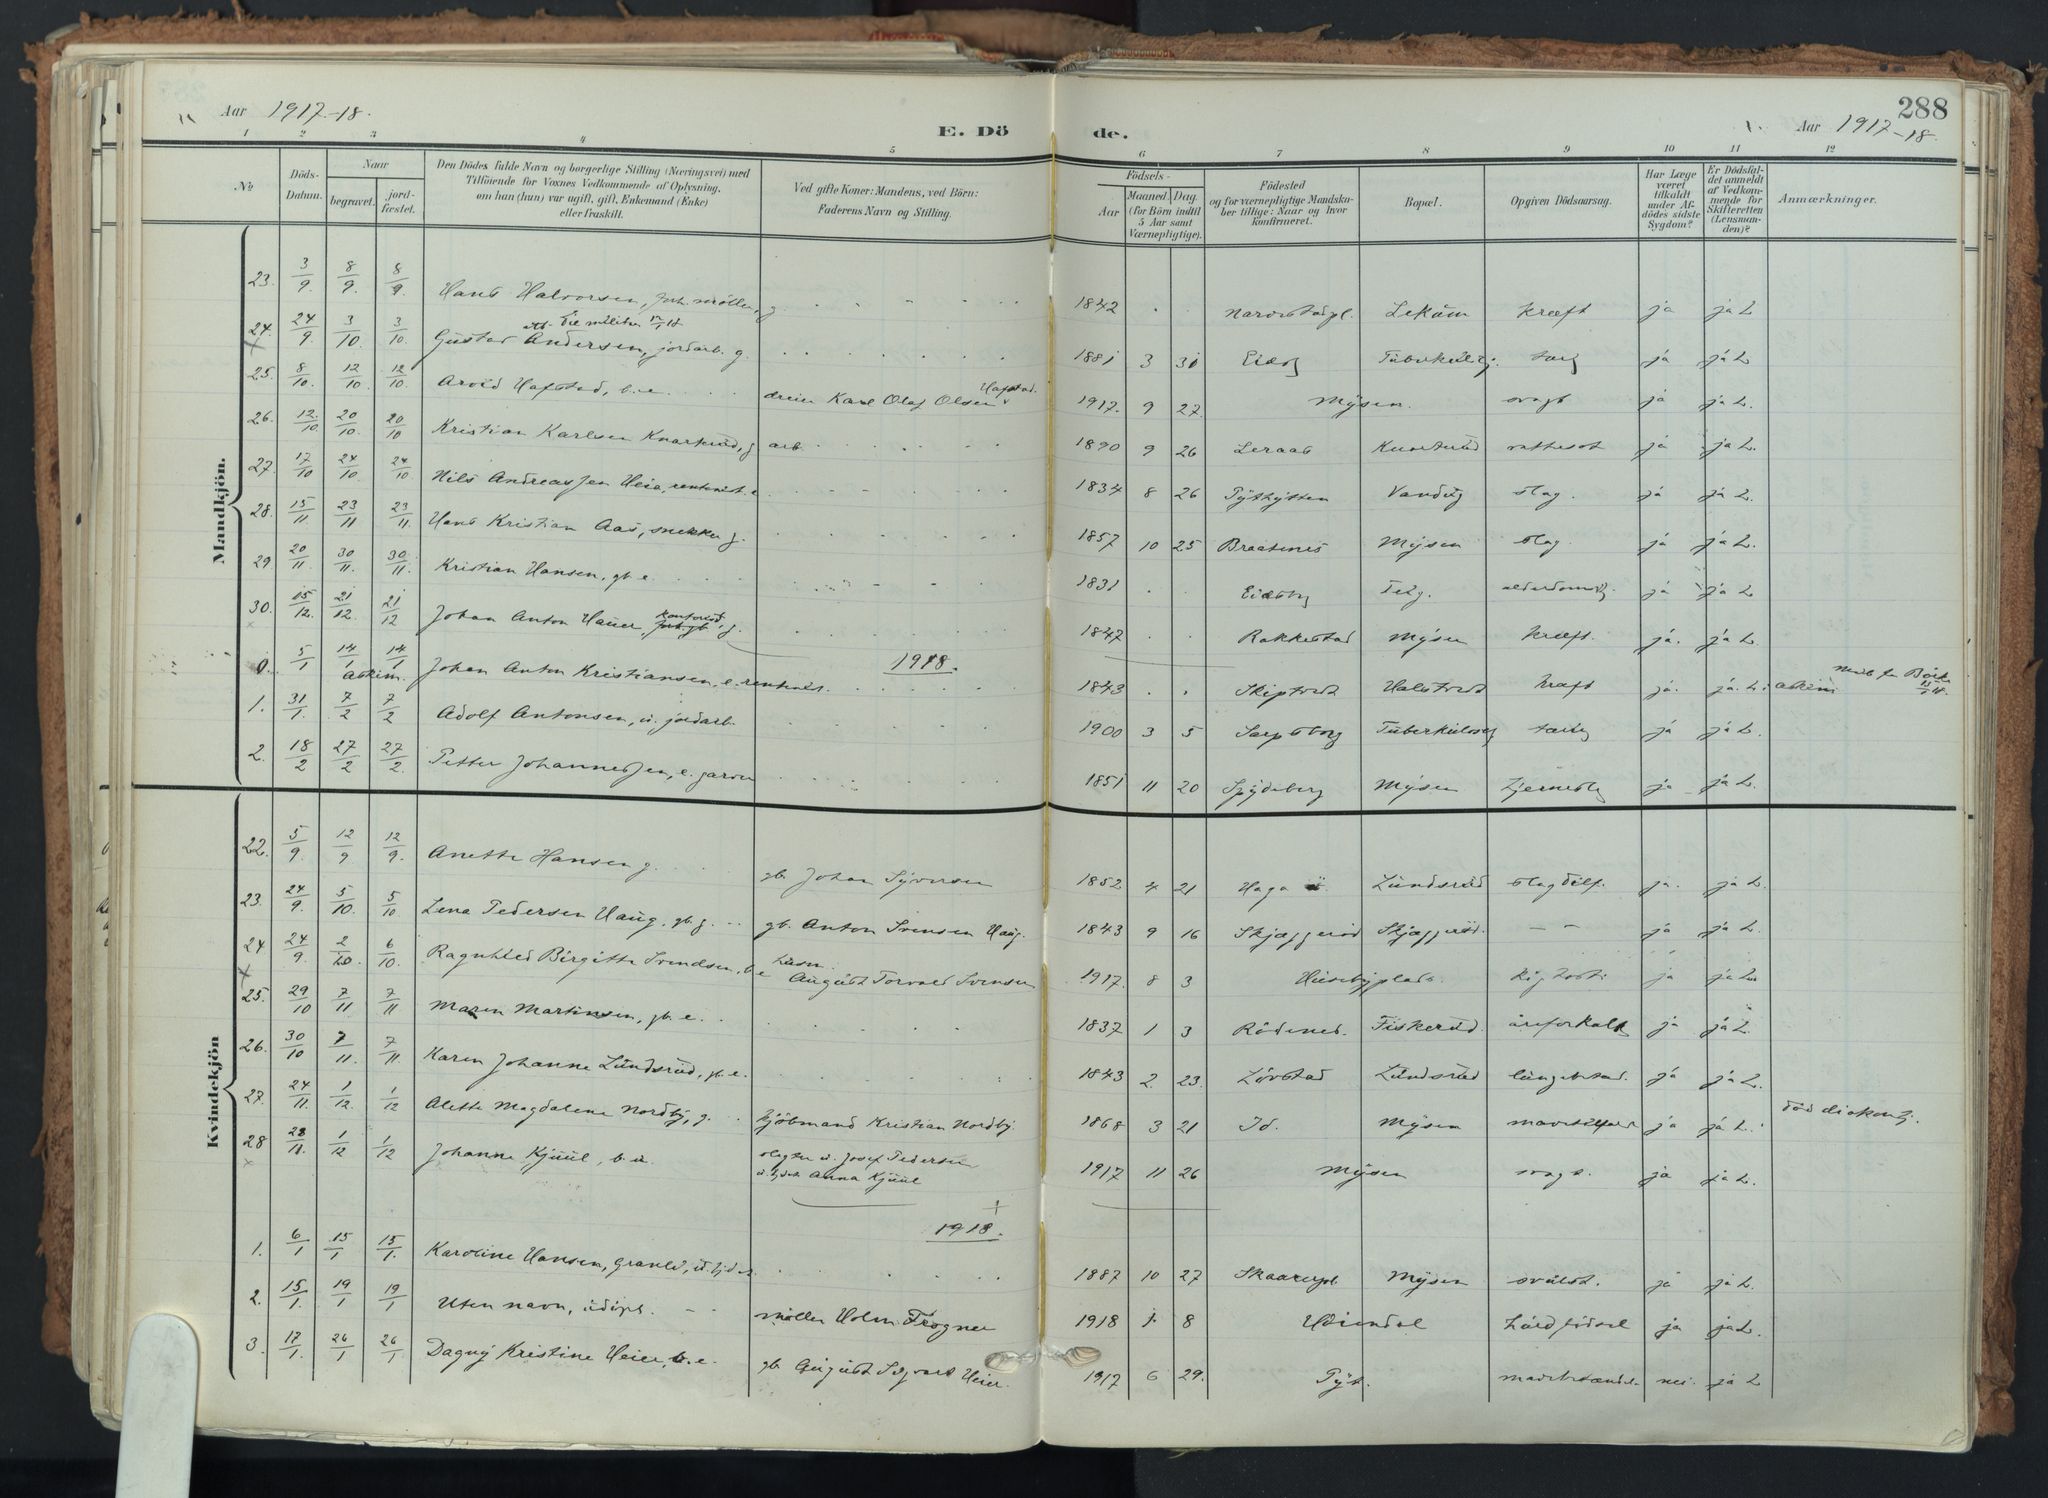 Aar 1917-18.
E. Dö de.
Aar 1917-18.
288
1 2 3 4 5 6 7 8 9 10 11 12
No
Döds-Datum.
Naar
begravet.
jord-fæstet.
Den Dödes fulde Navn og borgerlige Stilling (Næringsvei) med
Tilföiende for Voxnes Vedkommende af Oplysning,
om han (hun) var ugift, gift, Enkemand (Enke)
eller fraskilt.
Ved gifte Koner: Mandens, ved Börn:
Faderens Navn og Stilling.
Födsels-
Aar
Maaned. Dag.
(for Börn indtil
5 Aar samt
Værnepligtige).
Födested
og for værnepligtige Mandska-
ber tillige: Naar og hvor
konfirmeret.
Bopæl.
Opgiven Dödsaarsag.
Har Læge
været
tilkaldt
under Af-
dödes sidste
Sygdom?
Er Dödsfal-
det anmeldt
af Vedkom-
mende for
Skifteretten
(Lensman-
den)?
Anmærkninger.
Mandkjön.
23. 3/9. 8/9. 8/9. Hans Halvorsen, møller, g. 1842 Leküm kræft ja ja L
24. 24/9. 3/10. 3/10. Gustav Andersen, jordarb. g. 1881 3 31 Eidsbg Tuberkulosehj. ja ja L.
25. 8/10. 12/10. 12/10. Arvid Hafstad, b. e. dreier Karl Olaf Olsen Hafstad. 1917. 9 27. Mysen. svagt ja ja L.
26. 12/10. 20/10. 20/10 Kristian Karlsen Knarterud, g arb. 1890 9 26 Leraas Knarterud ja ja L.
27. 17/10 24/10. 24/10 Nils Andreassen Heia, rentenist. e. 1834 8 26 Vandug slag. ja ja L.
28. 15/11. 23/11 23/11. Hans Kristian Aas, snekker g. 1857 10 25 Braatenes Mysen slag. ja ja L.
29. 20/11. 30/11. 30/11. Kristian Hansen, gb. e. 1831 Eidsbg ja ja L
30. 15/12. 21/12. 21/12 Johan Anton Hauer, kontorist, g. 1847 Rakkestad Mysen kræft. ja. ja L.
1918.
0. 5/1 14/1 14/1 Askim. Johan Anton Kristiansen, e. rentenist. 1843 Halstvedt kræft ja. ja. L. Askim
1. 31/1. 7/2 7/2 Adolf Antonsen, u. jordarb. 1900 3 5 Sarpsborg Tuberkulosehj. ja ja L.
2. 18/2 27/2 27/2. Petter Johannessen, e. garver 1851 11 20 Spydeberg Mysen hjerneslg ja ja L.
Kvindekjön
22. 5/9. 12/9 12/9. Anette Hansen g. gb. Johan Syversen 1852 4 21 Haga Lundsrud slagtilf. ja. ja L
23. 24/9. 5/10. 5/10 Lena Pedersen Haug, gb. g. gb. Anton Svensen Haug. 1843 9 16 Skjæggerød Skjæggerød. - - ja ja L.
24 24/9 2/10 6/10. Ragnhild Birgitte Svendsen, b. e husm. August Torvald Svensen 1917. 8 3 Husebyplads. kighoste ja ja L.
25. 29/10 7/11 7/11 Maren Martinsen, gb. e. 1837 1 3 Rödenes. Fiskerud. åreforkalk ja ja L.
26. 30/10 7/11. 7/11. Karen Johanne Lundsrud, gb. e. 1843 2. 23. Lövstad Lundsrud lungebetænd. ja ja L.
27. 24/11. 1/12. 1/12 Alette Magdalene Nordby, g. kjöbmand Kristian Nordby 1868 3 21 Id. Mysen ja ja L. död diakonhj.
28 28/11. 1/12 1/12 Johanne Kjuul, b. u. slagter u. Josef Pedersen
u. tj. Anna Kjuul 1917 11 26 Mysen svagt. ja ja L.
1918.
1. 6/1 15/1 15/1. Karoline Hansen, granli, u. tj. 1887 10 27 Skaarerpl. Mysen svulst. ja ja L.
2. 15/1. 19/1 19/1 Uten navn, udöpt. möller Holm Frogner 1918 1. 8 haard födsel ja ja L.
3. 17/1. 26/1 26/1 Dagny Kristine Heier, b. e. gb. August Sigvart Heier. 1917 6 29. nei. ja L